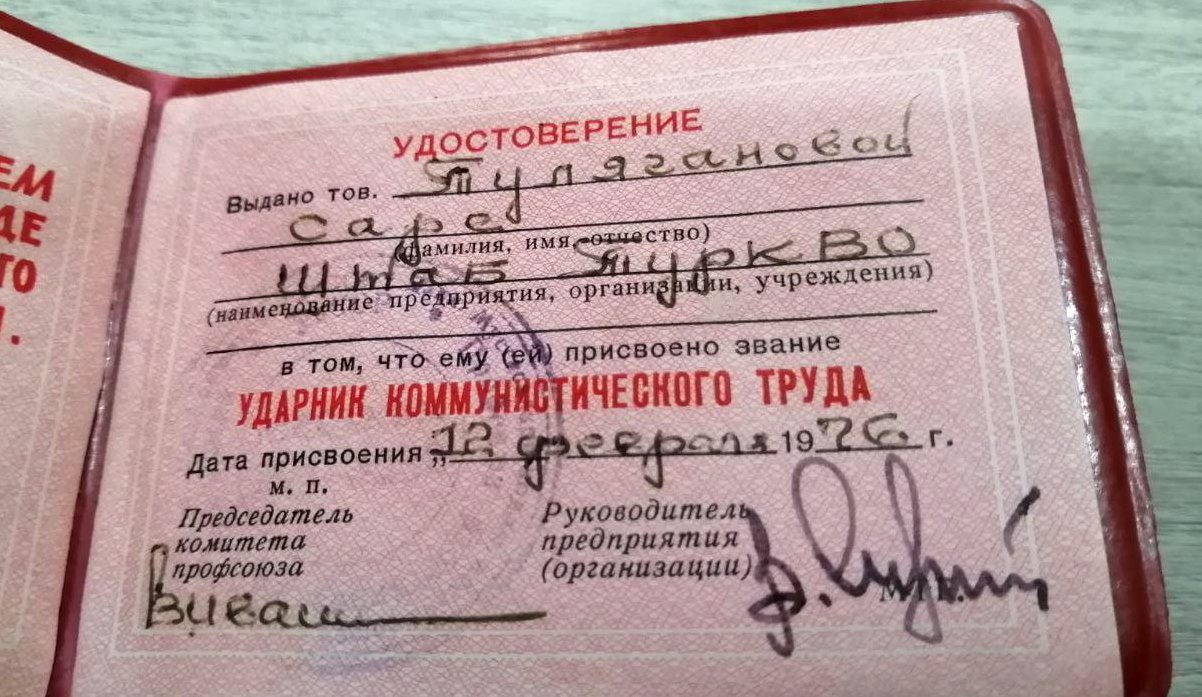 ЕМ
ДЕ
ГО
.
УДОСТОВЕРЕНИЕ
Выдано тов. Тулягановой
Саре
(фамилия, имя, отчество)
Штаб ТуркВО
(наименование предприятия, организации, учреждения)
в том, что ему (ей) присвоено звание
УДАРНИК КОММУНИСТИЧЕСКОГО ТРУДА
Дата присвоения „12 февраля 1976 г.
м. п.
Председатель
комитета
профсоюза
Руководитель
предприятия
(организации)